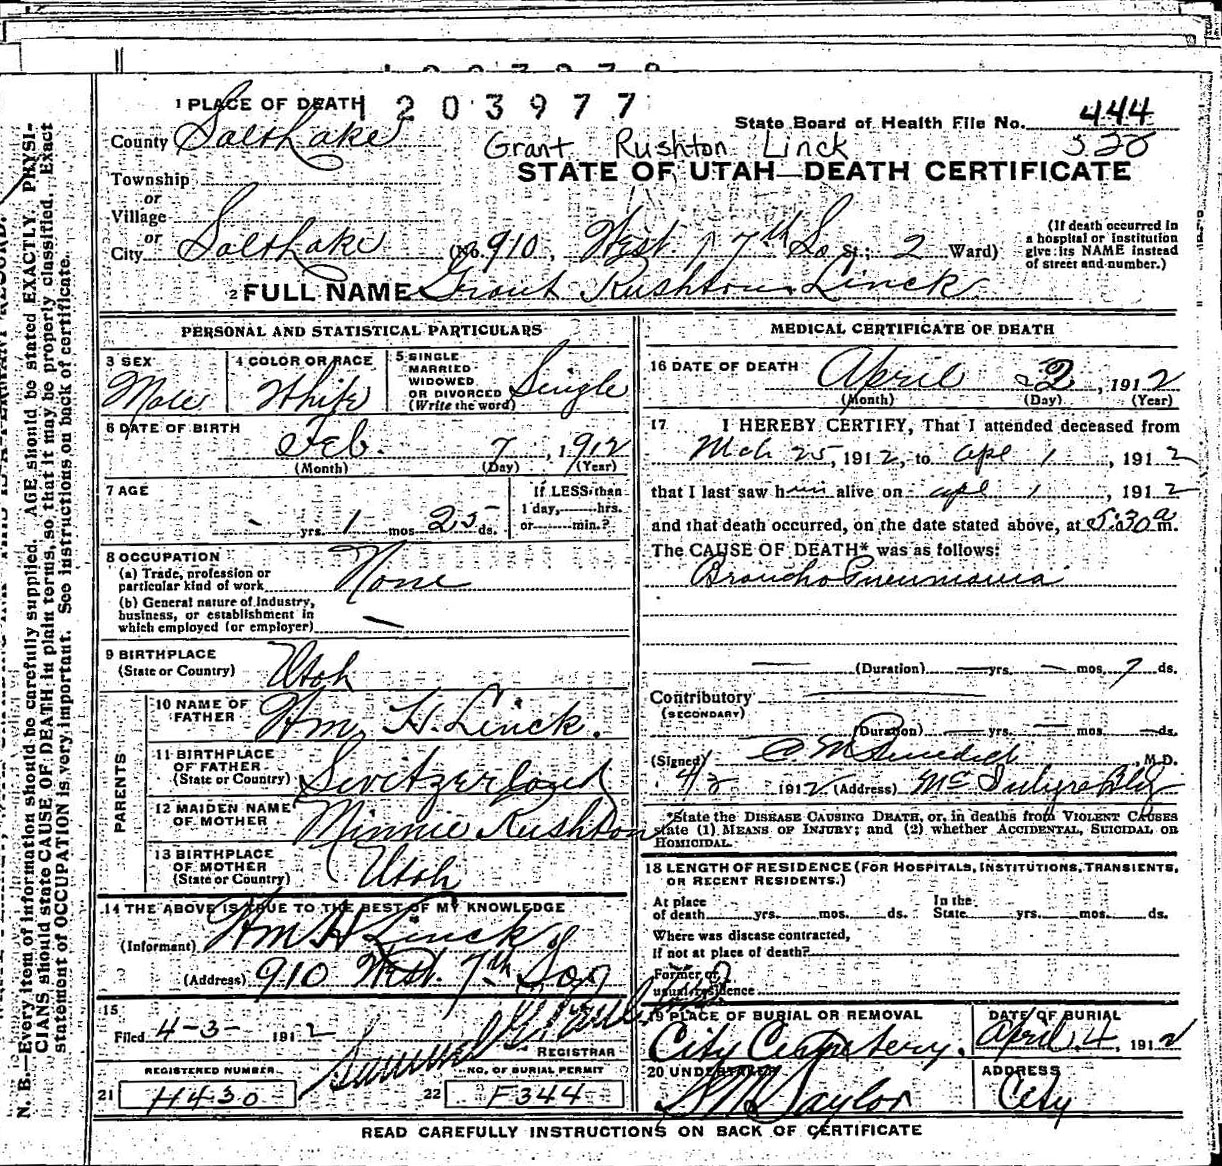 1 PLACE OF DEATH 1203977
State Board of Health File No. 444
County Salt Lake
Grant Rushton Linck 320
STATE OF UTAH—DEATH CERTIFICATE
Township
or
Village
or
City Salt Lake (No. 910, West 7th So St.; 2 Ward)
(If death occurred in a hospital or institution give its NAME instead of street and number.)
2 FULL NAME Grant Rushton Linck
PERSONAL AND STATISTICAL PARTICULARS
3 SEX Male
4 COLOR OR RACE White
5 SINGLE MARRIED WIDOWED OR DIVORCED (Write the word) Single
6 DATE OF BIRTH Feb. 7, 1912
(Month) (Day) (Year)
7 AGE
- yrs. 1 mos. 25 ds.
If LESS than 1 day, hrs. or min.?
8 OCCUPATION
(a) Trade, profession or particular kind of work None
(b) General nature of Industry, business, or establishment in which employed (or employer) —
9 BIRTHPLACE (State or Country) Utah
PARENTS
10 NAME OF FATHER Wm. H. Linck.
11 BIRTHPLACE OF FATHER (State or Country) Switzerland
12 MAIDEN NAME OF MOTHER Minnie Rushton
13 BIRTHPLACE OF MOTHER (State or Country) Utah
14 THE ABOVE IS TRUE TO THE BEST OF MY KNOWLEDGE
(Informant) Wm H Linck
(Address) 910 West 7th So
15
Filed 4-3- 1912 Samuel G.
REGISTRAR
REGISTERED NUMBER
21 H430
NO. OF BURIAL PERMIT
22 F344
MEDICAL CERTIFICATE OF DEATH
16 DATE OF DEATH April 2, 1912
(Month) (Day) (Year)
17 I HEREBY CERTIFY, That I attended deceased from
Mch 25, 1912, to Apl 1, 1912
that I last saw him alive on Apl 1, 1912
and that death occurred, on the date stated above, at 5:30 a m.
The CAUSE OF DEATH* was as follows:
Broncho Pneumonia
— (Duration) — yrs. — mos. 7 ds.
Contributory
(SECONDARY)
(Duration) — yrs. — mos. — ds.
(Signed) C M Benedict, M.D.
4/2 1912 (Address) McIntyre Bldg
*State the DISEASE CAUSING DEATH, or, in deaths from VIOLENT CAUSES
state (1) MEANS OF INJURY; and (2) whether ACCIDENTAL, SUICIDAL OR
HOMICIDAL.
18 LENGTH OF RESIDENCE (FOR HOSPITALS, INSTITUTIONS, TRANSIENTS,
OR RECENT RESIDENTS.)
At place of death yrs. mos. ds. In the State yrs. mos. ds.
Where was disease contracted,
if not at place of death?
Former or
usual residence
19 PLACE OF BURIAL OR REMOVAL City Cemetery.
DATE OF BURIAL April 4. 1912
20 UNDERTAKER S M Taylor
ADDRESS City
READ CAREFULLY INSTRUCTIONS ON BACK OF CERTIFICATE
N. B.—Every item of information should be carefully supplied. AGE should be stated EXACTLY. PHYSI-
CIANS should state CAUSE OF DEATH in plain terms, so that it may be properly classified. Exact
statement of OCCUPATION is very important. See instructions on back of certificate.